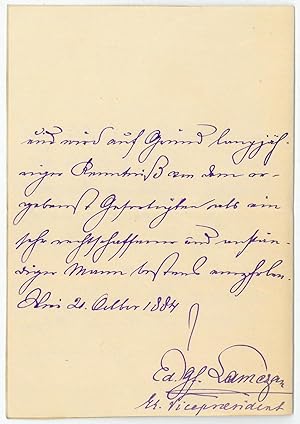 und wird auf Grund langjäh-
riger Kenntniß von dem er-
gebenst Gefertigten als ein
sehr rechtschaffener und anstän-
diger Mann bestens empfohlen.
Wien 21. October 1884
Ed. Gf. Lamezan
Vicepræsident